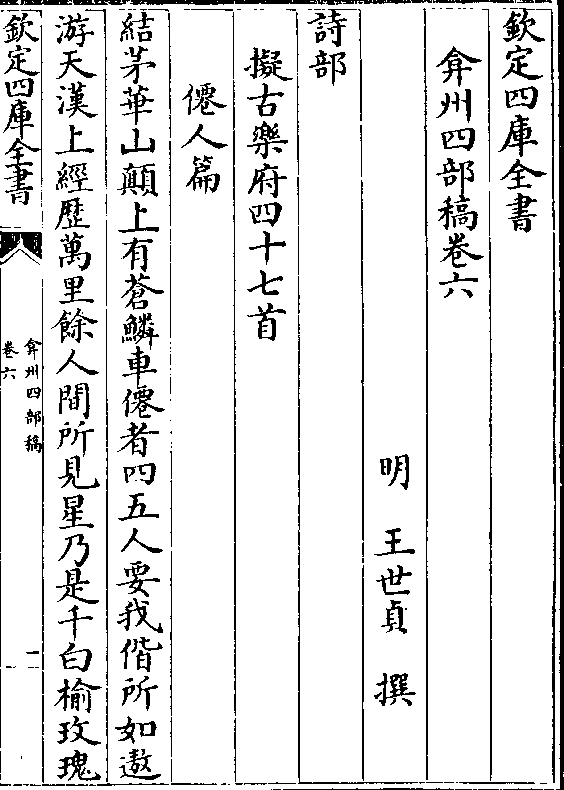 欽定四庫全書
弇州四部稿卷六
明　王世貞　撰
詩部
擬古樂府四十七首
僊人篇
結茅華山顛上有蒼鱗車僊者四五人要我偕所如遨
游天漢上經歷萬里餘人間所見星乃是千白榆玫瑰
欽定四庫全書
弇州四部稿
卷六
一